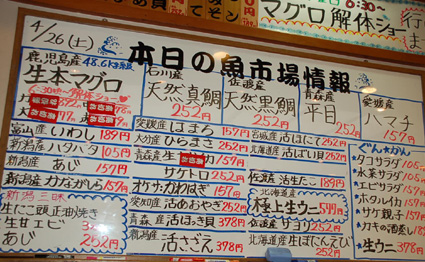 マグロ解体ショー
行
4/26(土)
本日の魚市場情報
鹿児島産 48.6kg級
生本マグロ
6:30~解体ショー
石川産
天然真鯛
252円
佐渡産
天然黒鯛
252円
青森産
平目
252円
愛媛産
ハマチ
157円
富山産 いわし 189円
新潟産 ハタハタ 105円
新潟産 あじ 157円
新潟産 カながしら 157円
新潟三昧
生にこ頭正油焼き
生甘エビ
あじ 252円
愛媛産 はまち 157円
大分産 ひらまさ 252円
青森産
サケトロ 252円
オケサカわはぎ 157円
愛知産 活あおやぎ 252円
青森産 活ほっき貝 378円
新潟産 活さざえ 378円
宮城産 活ほたて 252円
北海道産 活ばい貝 252円
佐渡産 活生たこ 189円
北海道産
極上生ウニ 599円
佐渡産 サヨリ 252円
北海道産 生ぼたんえび 252円
ぐんかん
タコサラダ 105
水菜サラダ 105
エビサラダ 105円
ホタルイカ
サケ親子
カキの酒蒸し 189円
生ウニ 398円